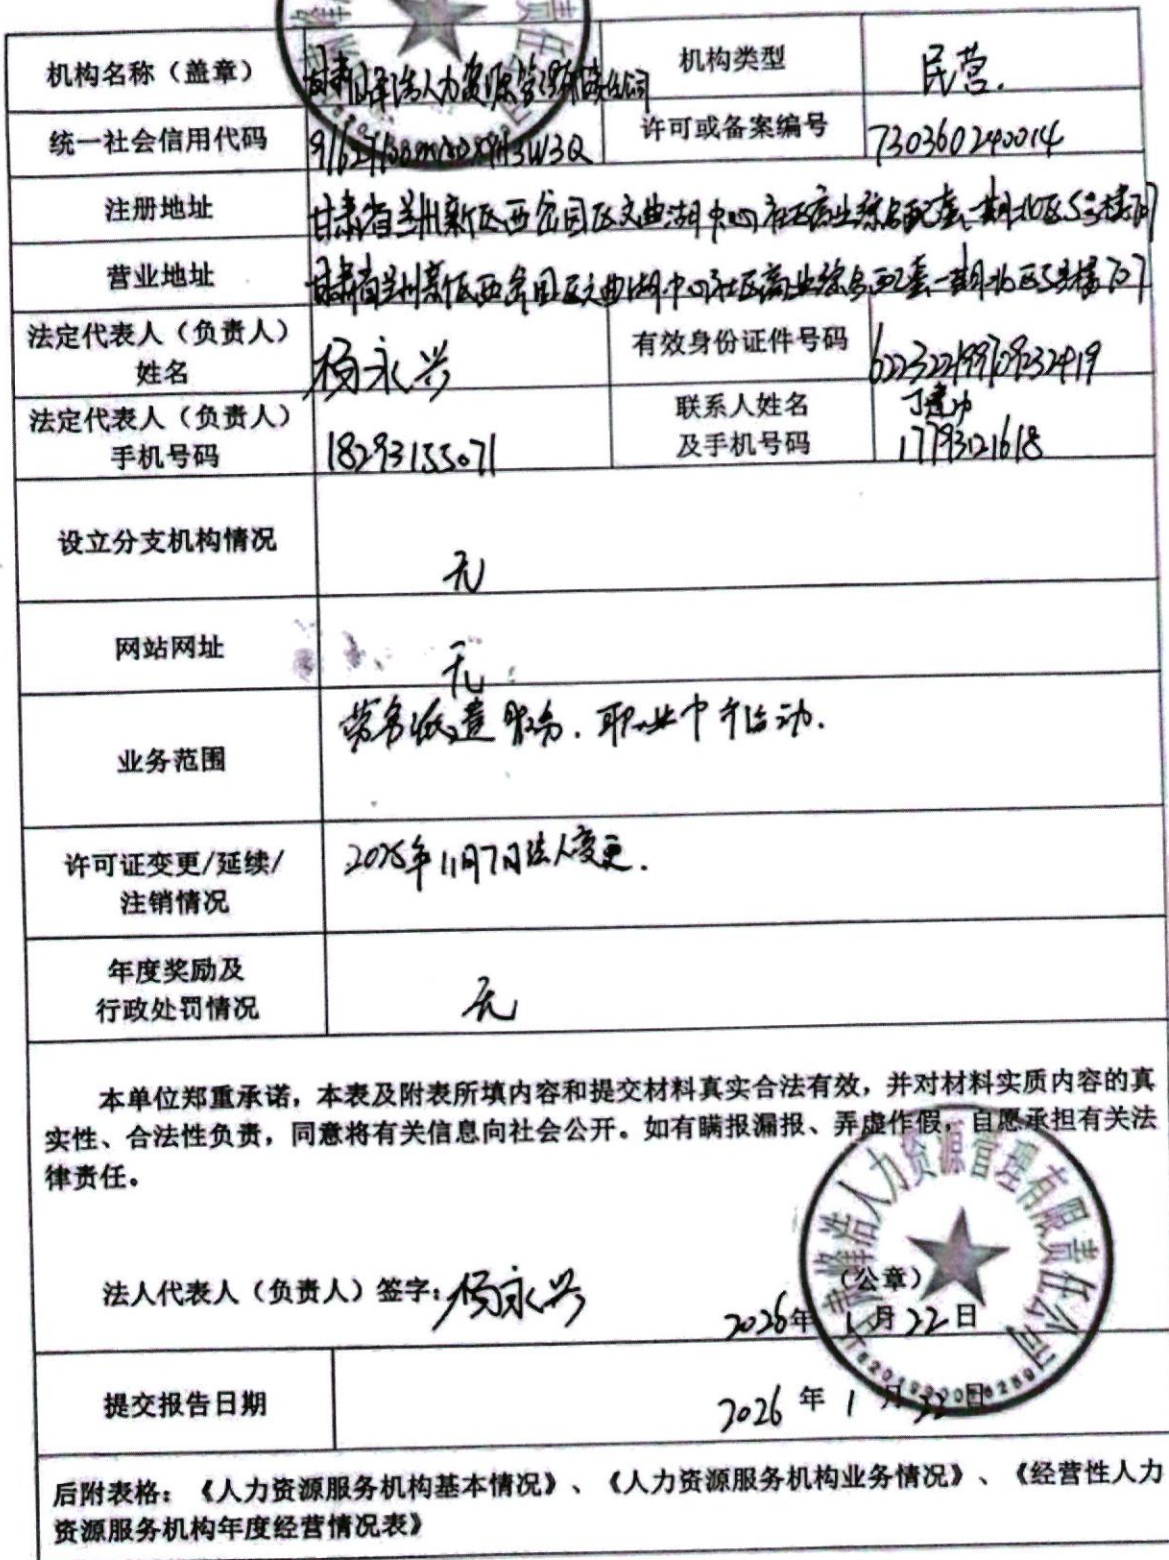 机构名称（盖章） 人力资源管理有限责任公司 机构类型 民营.
统一社会信用代码 许可或备案编号 730360240014
注册地址 甘肃省兰州新区西岔园区文曲湖中心社区商业综合配套一期北区5号楼707
营业地址 甘肃省兰州新区西岔园区文曲湖中心社区商业综合配套一期北区5号楼707
法定代表人（负责人）
姓名 杨永兴 有效身份证件号码
法定代表人（负责人）
手机号码 18293155071 联系人姓名
及手机号码 17793121618
设立分支机构情况 无
网站网址 无
业务范围 劳务派遣服务.职业中介活动.
许可证变更/延续/
注销情况 2025年11月7日法人变更.
年度奖励及
行政处罚情况 无
本单位郑重承诺，本表及附表所填内容和提交材料真实合法有效，并对材料实质内容的真
实性、合法性负责，同意将有关信息向社会公开。如有瞒报漏报、弄虚作假，自愿承担有关法
律责任。
人力资源管理有限责任公司
法人代表人（负责人）签字：杨永兴 （公章）
2026年 1 月 22 日
提交报告日期 2026 年 1 月 22 日
后附表格：《人力资源服务机构基本情况》、《人力资源服务机构业务情况》、《经营性人力
资源服务机构年度经营情况表》